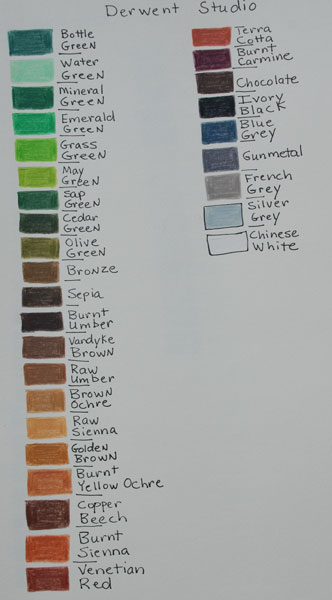 Derwent Studio
Bottle
Green
Water
Green
Mineral
Green
Emerald
Green
Grass
Green
May
Green
Sap
Green
Cedar
Green
Olive
Green
Bronze
Sepia
Burnt
Umber
Vandyke
Brown
Raw
Umber
Brown
Ochre
Raw
Sienna
Golden
Brown
Burnt
Yellow Ochre
Copper
Beech
Burnt
Sienna
Venetian
Red
Terra
Cotta
Burnt
Carmine
Chocolate
Ivory
Black
Blue
Grey
Gunmetal
French
Grey
Silver
Grey
Chinese
White